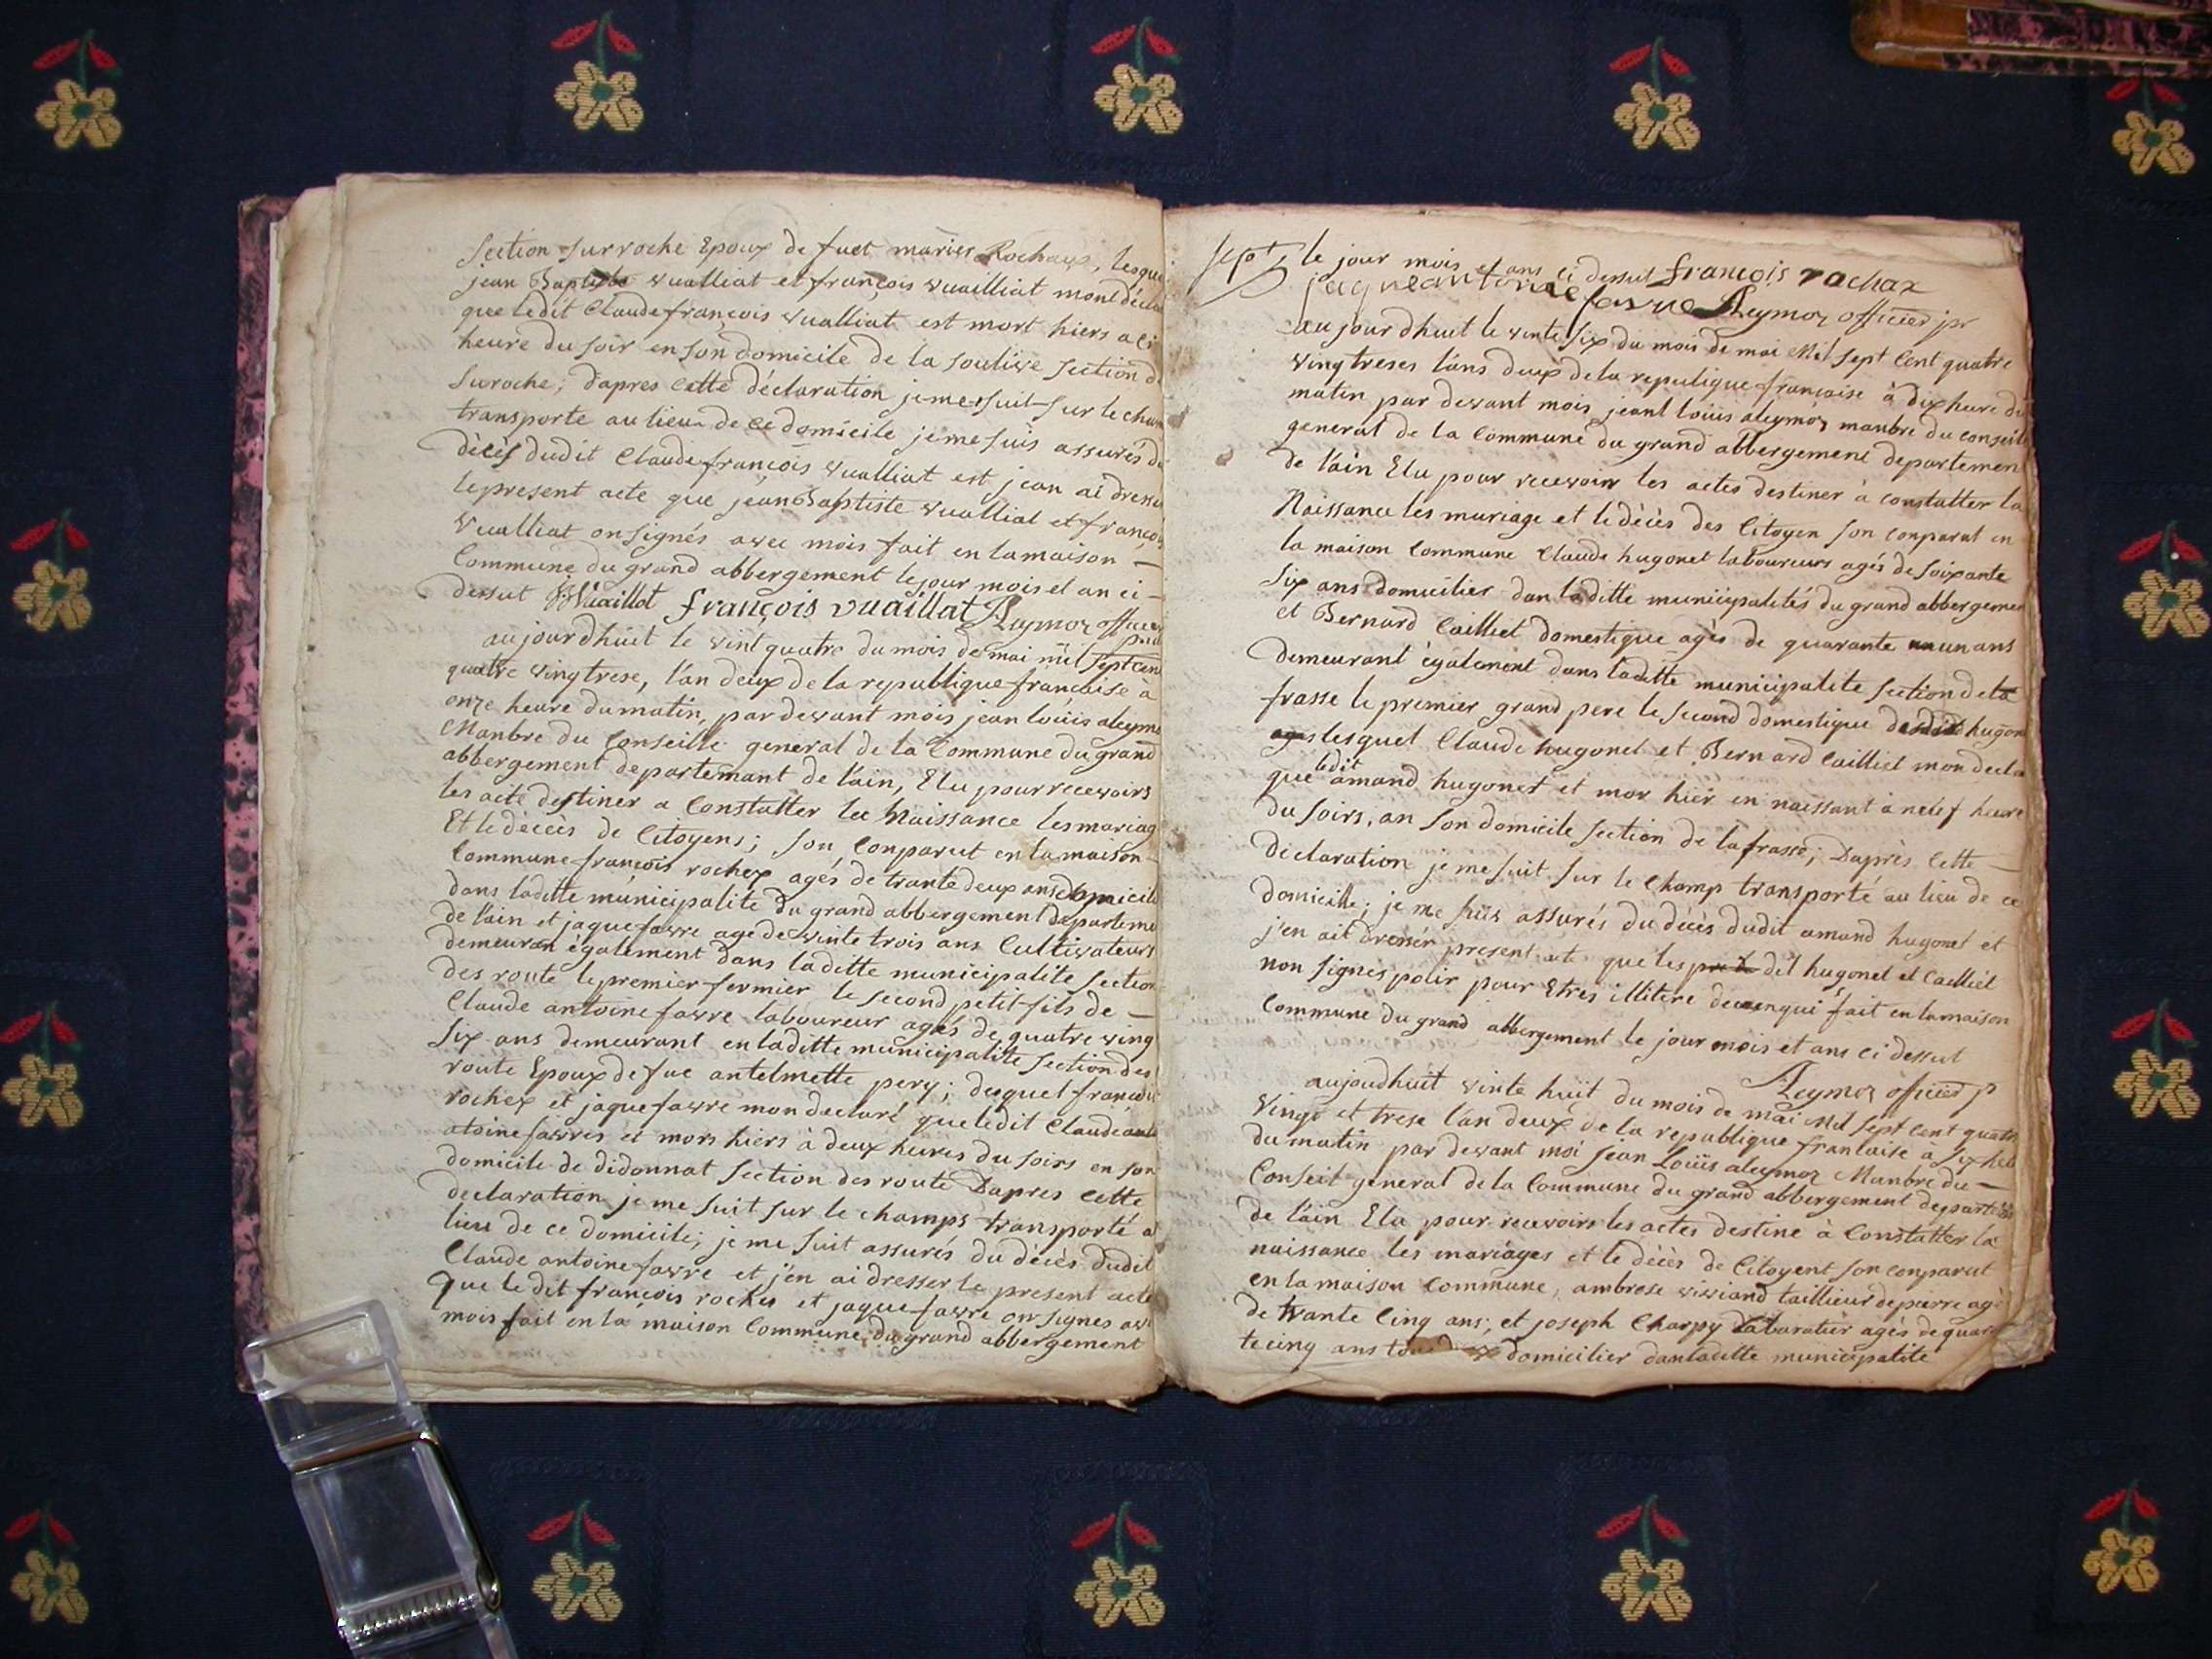 Section Surroche Epoux de fuet maries Rochaux, lesquel
jean Baptiste vualliat et françois vuailliat mont décla
que ledit Claude françois vualliat est mort hiers a
heure du soir en son domicile de la souliwe section d
Suroche; d'apres cette déclaration je me suit sur le cham
transporte au lieu de ce domicile je me suis assurés du
décès dudit Claude françois vualliat est jean ai dresse
le present acte que jean Baptiste vualliat et françois
vualliat on signés avec mois fait en la maison —
Commune du grand abbergement le jour mois et an ci —
dessut Vuaillot françois vuaillat Aleymoz officier
aujourdhuit le vint quatre du mois de mai mil sept cent
quatre ving trese, l'an deux de la republique francaise à
onze heure du matin, par devant mois jean louis aleymo
Manbre du Conseille general de la Commune du grand
abbergement departemant de l'ain, Elu pour recevoirs
les acte destiner a Constatter les Naissance les mariag
Et le décès de Citoyens; son Conparut en la maison
Commune françois rochex agés de trante deux ans domicile
dans ladette municipalite du grand abbergement departeme
de l'ain et jaque favre age de vinte trois ans Cultivateurs
demeuran également dans ladette municipalite section
des route le premier fermier le second petit fils de —
Claude antoine favre laboureur agés de quatre ving
Six ans demeurant en ladette municipalite section des
route Epoux de fue antelmette pery; desquel françois
rochex et jaque favre mon declaré que ledit Claude an
atoine favres et mors hiers à deux heures du soirs en son
domicile de didonnat section des route Dapres cette
declaration je me suit sur le champs transporté a
lieu de ce domicile; je me suit assurés du décès dudit
Claude antoine favre et j'en ai dresser le present acte
Que ledit françois rochex et jaque favre on signes av
mois fait en la maison Commune du grand abbergement
le jour mois et ans ci dessut françois rochax
jaque antoine favre Aleymoz officier
aujourdhuit le vinte six du mois de mai Mil sept Cent quatre
ving treses l'ans deux de la republique française à dix heure du
matin par devant mois jeant louis aleymoz manbre du conseil
general de la Commune du grand abbergement departemen
de l'ain Elu pour recevoir les actes destiner à constatter la
Naissance les mariage et le décès des Citoyen son conparut en
la maison Commune Claude hugonet laboureurs agés de soixante
Six ans domicilier dan ladette municipalités du grand abbergemen
et Bernard Cailliet domestique agés de quarante un ans
Demeurant également dans ladette municipalite section de la
frasse le premier grand pere le second domestique dudit hugon
lesquel Claude hugonet et Bernard Cailliet mon decla
que ledit amand hugonet et mor hier en naissant à neuf heure
du soirs, an son domicile section de la frasse; Daprès cette —
declaration je me suit sur le champ transporté au lieu de ce
domicille; je me suis assurés du décès dudit amand hugonet et
j'en ait dresser present acte que les dit hugonet et Cailliet
non signés pour Etres illitere de ce enqui fait en la maison
Commune du grand abbergement le jour mois et ans ci dessut
Aleymoz officier p
aujoudhuit vinte huit du mois de mai Mil sept cent quatr
Vingt et trese l'an deux de la republique francaise à six heu
du matin par devant moi jean Louis aleymoz Manbre du —
Conseil general de la Commune du grand abbergement departe
de l'ain Elu pour recevoirs les actes destine à Constatter la
naissance les mariages et le décès de Citoyent son conparut
en la maison commune, ambrose viviand taillieur de pierre agé
de trante cinq ans; et joseph Charpy agés de quar
te cinq ans domicilier dan ladette municipalite